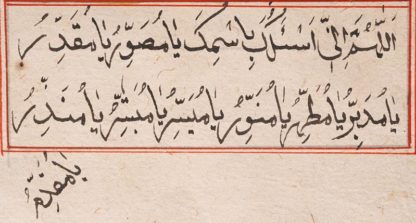 اَللّٰهُمَّ اِنّیٖ اَسْئَلُكَ بِاسْمِكَ یَا مُصَوِّرُ یَا مُقَدِّرُ
یَا مُدَبِّرُ یَا مُطَهِّرُ یَا مُنَوِّرُ یَا مُیَسِّرُ یَا مُبَشِّرُ یَا مُنْذِرُ
یَا مُقَدِّمُ